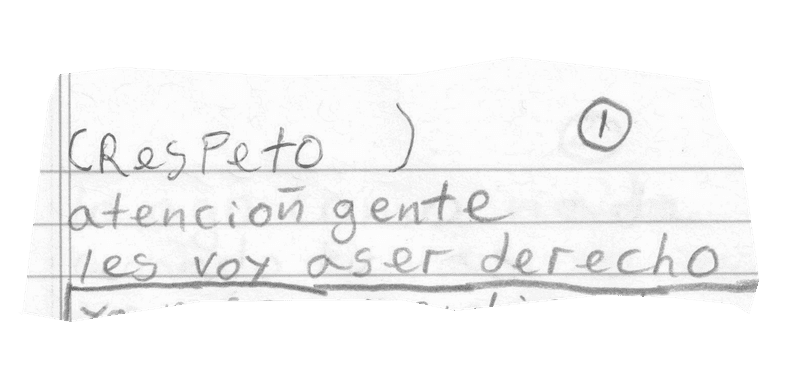 (ResPeto ) 1
atencioñ gente
les voy aser derecho